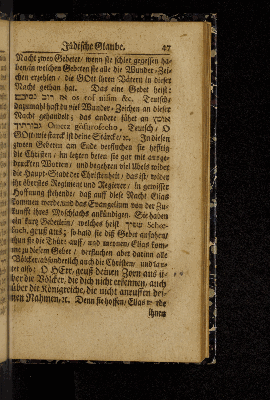 Jüdische Glaube. 47
Nacht zwey Gebeter/ wenn sie schier gegessen ha-
ben/in welchen Gebeten sie alle die Wunder-Zei-
chen erzehlen / die GOtt ihren Vätern in dieser
Nacht gethan hat. Das eine Gebet heist:
os rof nisim &c. Teutsch:
dazumahl hast du viel Wunder-Zeichen an dieser
Nacht gehandelt; das andere fähet an
Teutsch/ O
GOtt wie starck ist deine Stärcke/ ꝛc. In diesen
zweyen Gebeten am Ende verfluchen sie hefftig
die Christen/ im letzten beten sie gar mit ausge-
druckten Worten/ und begehren viel Ubels wider
die Haupt-Stadt der Christenheit/ das ist/ wider
ihr öberstes Regiment und Regierer/ in gewisser
Hoffnung stehend/ daß auf diese Nacht Elias
kommen werde/und das Evangelium von der Zu-
kunfft ihres Meschiachs ankündigen. Sie haben
ein kurtz Gebetlein/ welches heist שפוך Schee-
foch, geuß aus; so bald sie diß Gebet anfahen/
thun sie die Thür auff/ und meynen/ Elias kom-
me; zu diesem Gebet / verfluchen aber darinn alle
Völcker/absonderlich auch die Christen/ und lau-
tet also: O HErr, geuß deinen Zorn aus ü-
ber die Völcker, die dich nicht erkennen, auch
über die Königreiche, die nicht anruffen dei-
nen Nahmen, ꝛc. Denn sie hoffen/ Elias werde
ihnen